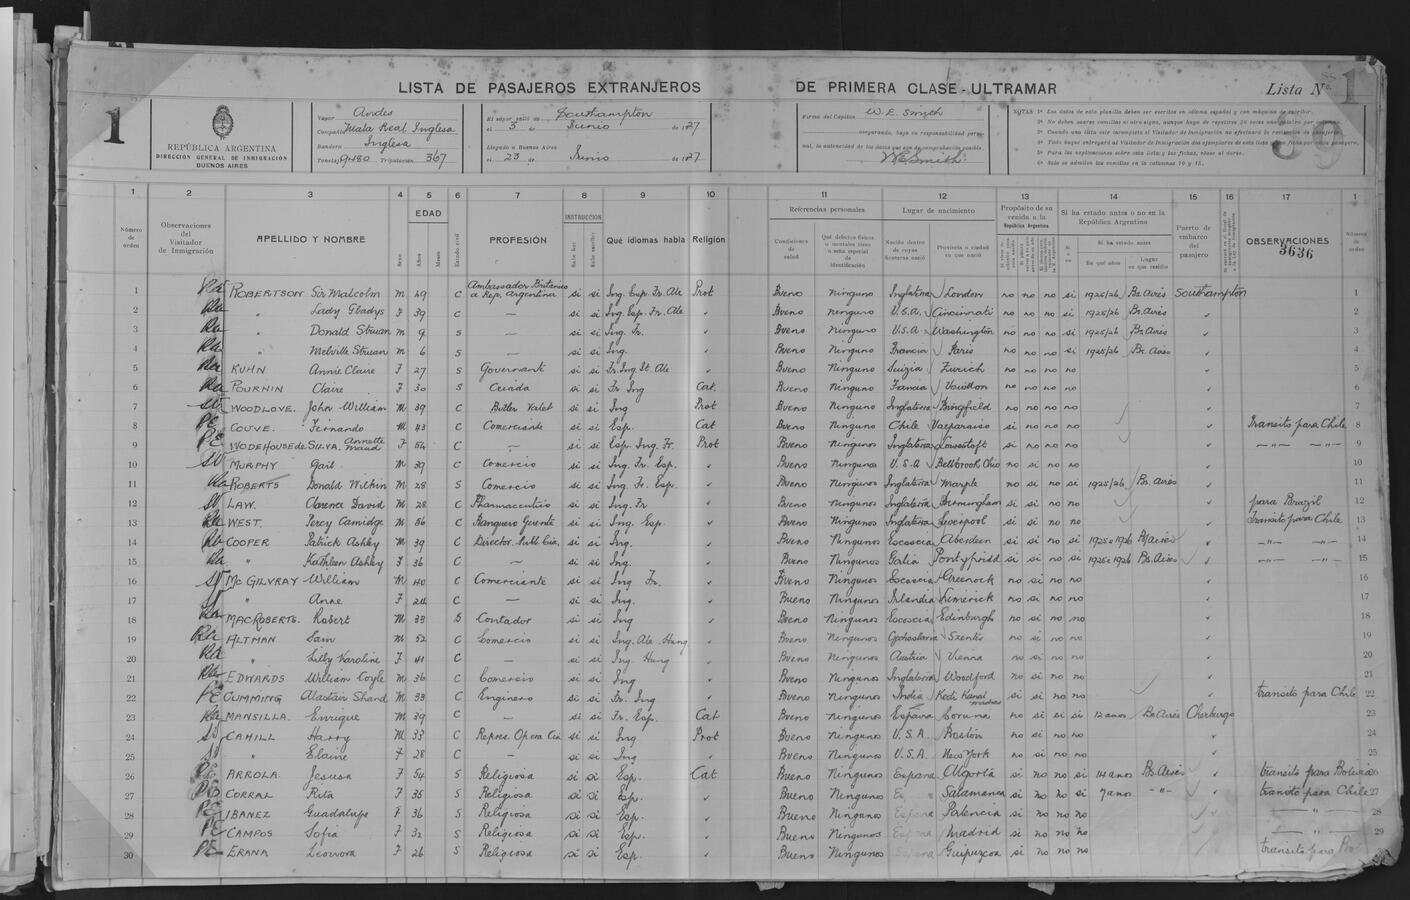 LISTA DE PASAJEROS EXTRANJEROS DE PRIMERA CLASE - ULTRAMAR Lista No. 1
1
REPÚBLICA ARGENTINA
DIRECCIÓN GENERAL DE INMIGRACIÓN
BUENOS AIRES
Vapor Andes
Compañía Mala Real Inglesa
Bandera Inglesa
Tripulación 367
El vapor salió de Southampton
el 5 de Junio de 1927
Llegado a Buenos Aires
el 23 de Junio de 1927
Firma del Capitán W. E. Smith
asegurando, bajo su responsabilidad personal, la autenticidad de los datos que son de comprobación posible,
W E Smith
39
1 2 3 4 5 6 7 8 9 10 11 12 13 14 15 16 17 1
Número de orden Observaciones del Visitador de Inmigración APELLIDO Y NOMBRE Sexo EDAD Años Meses Estado civil PROFESIÓN INSTRUCCION Sabe leer Sabe escribir Qué idiomas habla Religión
Referencias personales Condiciones de salud Qué defectos físicos o mentales tiene o seña especial de identificación
Lugar de nacimiento Provincia o ciudad en que nació
Propósito de su venida a la República Argentina
Si ha estado antes o no en la República Argentina Si ha estado antes En qué años Lugar en que residió
Puerto de embarco del pasajero OBSERVACIONES Número de orden
3636
1 ROBERTSON Sir Malcolm M 49 C Ambassador Britanico a Rep. Argentina si si Ing. Esp. Fr. Ale Prot Bueno Ninguno Inglaterra London no no no si 1925/26 Bs. Aires Southampton 1
2 " Lady Gladys F 39 C — si si Ing. Esp. Fr. Ale Bueno Ninguno U.S.A. Cincinnati no no no si 1925/26 Bs. Aires 2
3 " Donald Struan M 9 S — si si Ing. Fr. Bueno Ninguno U.S.A. Washington no no no si 1925/26 Bs. Aires 3
4 " Melville Struan M 6 S — si si Ing. Bueno Ninguno Francia Paris no no no si 1925/26 Bs. Aires 4
5 KUHN Annie Claire F 27 S Governante si si Fr. Ing. It. Ale Bueno Ninguno Suizia Zurich no no no no 5
6 POURNIN Claire F 30 S Criada si si Fr Ing Cat. Bueno Ninguno Francia no no no no 6
7 WOODLOVE. John William M 39 C Butler Valet si si Ing Prot Bueno Ninguno Inglaterra no no no no 7
8 COUVE. Fernando M 43 C Comerciante si si Esp. Cat Bueno Ninguno Chile Valparaiso si no no no Transito para Chile 8
9 WODEHOUSE de SILVA. Annette Maud F 54 C — si si Esp. Ing. Fr. Prot Bueno Ninguno Inglaterra Lowestoft si no no no —"— —"— 9
10 MURPHY Gail M 39 C Comercio si si Ing. Fr. Esp. Bueno Ninguno U.S.A Bellbrook Ohio no si no no 10
11 ROBERTS Donald Wilkin M 28 S Comercio si si Ing. Fr. Esp. Bueno Ninguno Inglaterra Marple no si no no 1925/26 Bs. Aires 11
12 LAW. Clarence David M 28 C Pharmaceutico si si Ing. Fr Bueno Ninguno Inglaterra Birmingham si si no no para Brazil 12
13 WEST. Percy Camidge M 56 C Banquero Gerente si si Ing. Esp. Bueno Ninguno Inglaterra Liverpool si si no no Transito para Chile 13
14 COOPER Patrick Ashley M 39 C Director. Pub. Cia. si si Ing. Bueno Ninguno Escocia Aberdeen si si no no 1925 a 1926 Bs Aires —"— —"— 14
15 " Kathleen Ashley F 36 C — si si Ing. Bueno Ninguno Galia Pontypridd si si no si 1925 a 1926 Bs. Aires —"— —"— 15
16 MCGILVRAY William M 40 C Comerciante si si Ing Fr. Bueno Ninguno Escocia Greenock no si no no 16
17 " Anne F 24 C — si si Ing. Bueno Ninguno Irlandia Limerick no si no no 17
18 MACROBERTS. Robert M 33 S Contador si si Ing Bueno Ninguno Escocia Edinburgh no si no no 18
19 ALTMAN Sam M 52 C Comercio si si Ing. Ale. Hung Bueno Ninguno Szentes no si no no 19
20 " Lilly Karoline F 41 C — si si Ing Hung Bueno Ninguno Austria Vienna no si no no 20
21 EDWARDS William Coyle M 36 C Comercio si si Ing Bueno Ninguno Inglaterra Woodford no si no no 21
22 CUMMING Alastair Shand M 33 C Enginero si si Fr. Ing Bueno Ninguno India Madras si si no no transito para Chile 22
23 MANSILLA. Enrique M 39 C — si si Fr. Esp. Cat Bueno Ninguno España Coruna no si si si 12 anos Bs Aires Cherburgo 23
24 CAHILL Harry M 33 C Repres. Opera Cia si si Ing Prot Bueno Ninguno U.S.A. Boston no si no no 24
25 " Elaine F 28 C — si si Ing Bueno Ninguno U.S.A. New York no si no no 25
26 ARROLA. Jesusa F 54 S Religiosa si si Esp. Cat Bueno Ninguno España Algorta si no no si 14 anos Bs. Aires transito para Bolivia 26
27 CORRAL Rita F 35 S Religiosa si si Esp. Bueno Ninguno Salamanca si no no si 7 anos —"— transito para Chile 27
28 IBANEZ Guadalupe F 36 S Religiosa si si Esp. Bueno Ninguno España Palencia si no no no —"— 28
29 CAMPOS Sofia F 32 S Religiosa si si Esp. Bueno Ninguno España Madrid si no no no —"— 29
30 ERANA Leonora F 26 S Religiosa si si Esp. Bueno Ninguno España Guipuzcoa si no no no transito para